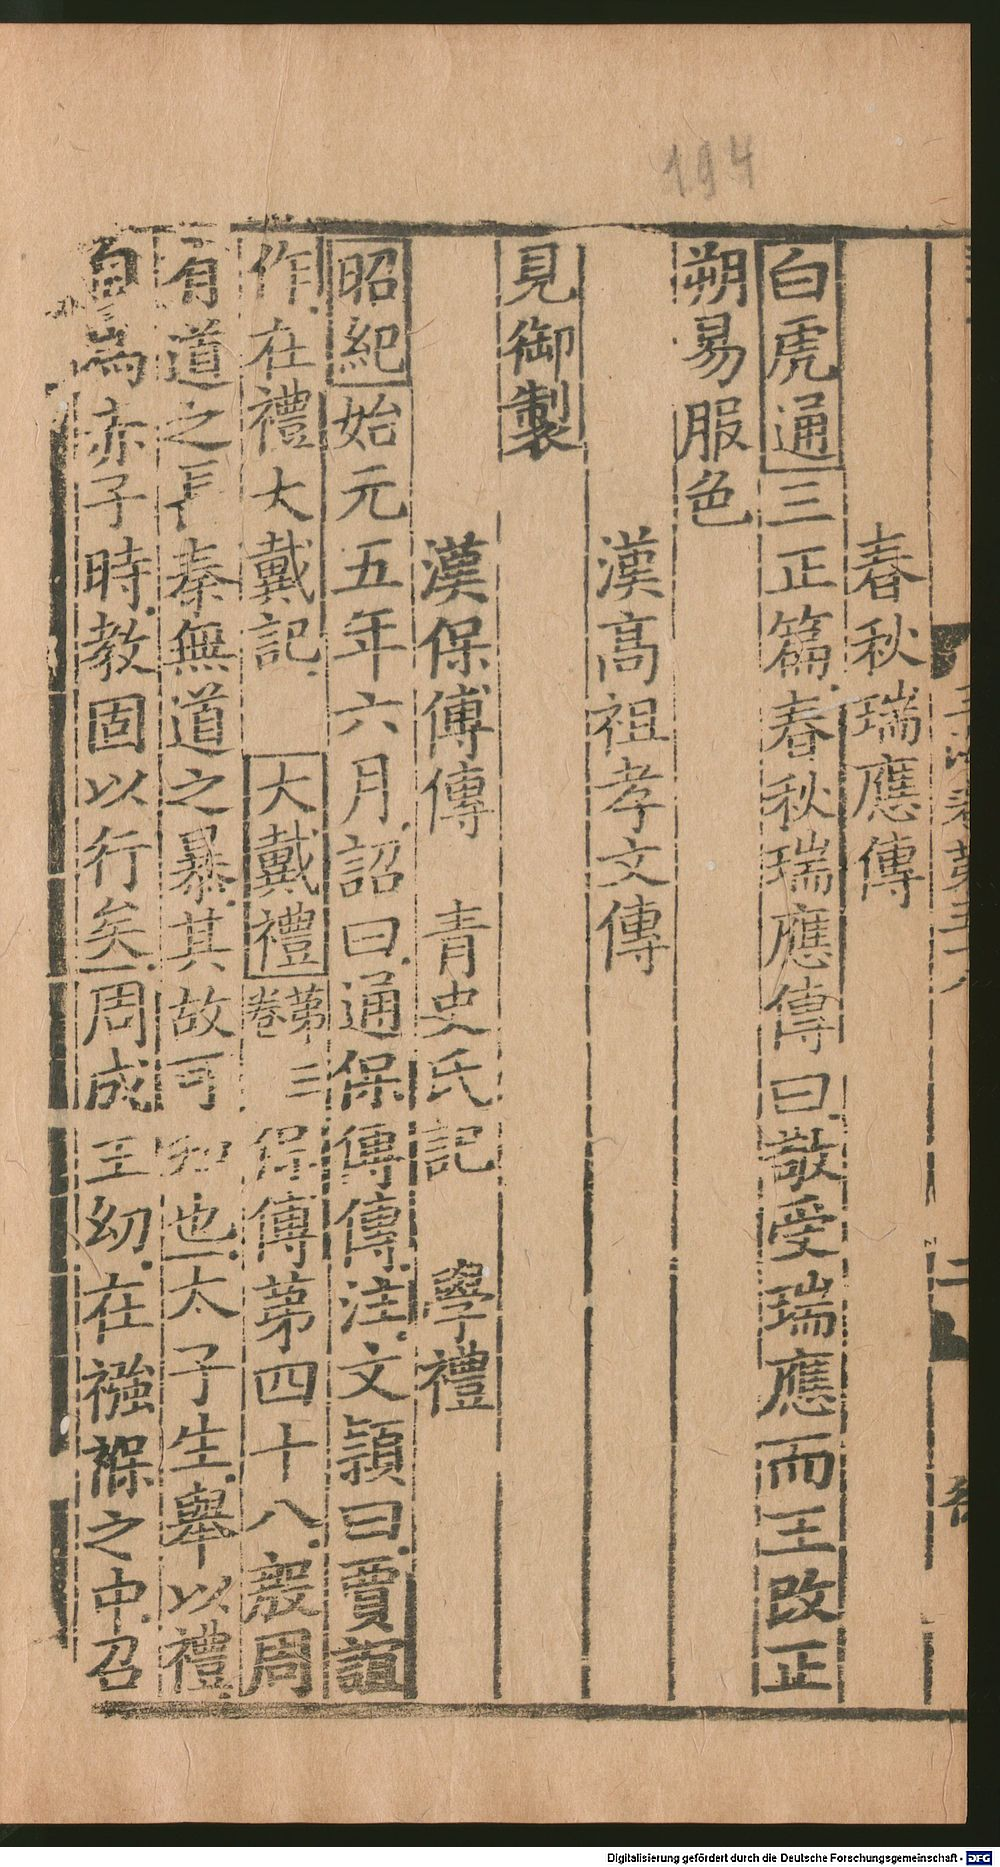 194
春秋瑞應傳
白虎通三正篇春秋瑞應傳曰敬受瑞應而王改正
朔易服色
漢高祖孝文傳
見御製
漢保傅傳 青史氏記 學禮
昭紀始元五年六月詔曰通保傅傳注文穎曰賈誼
作在禮大戴記 大戴禮第三卷保傅第四十八殷周
有道之長秦無道之暴其故可知也太子生舉以禮
自為赤子時教固以行矣周成王幼在襁褓之中召
Digitalisierung gefördert durch die Deutsche Forschungsgemeinschaft - DFG